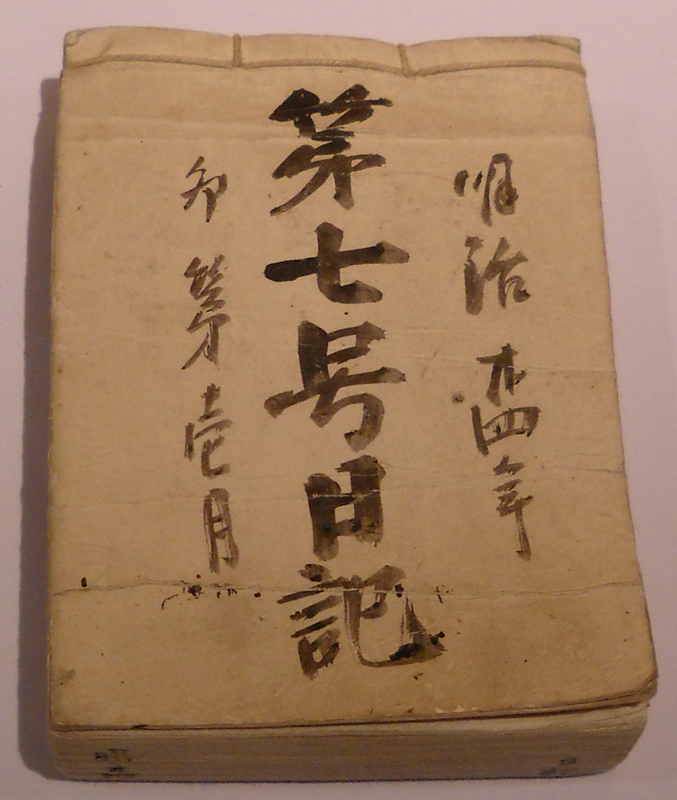 明治廿四年
第七号日記
卯第壱月